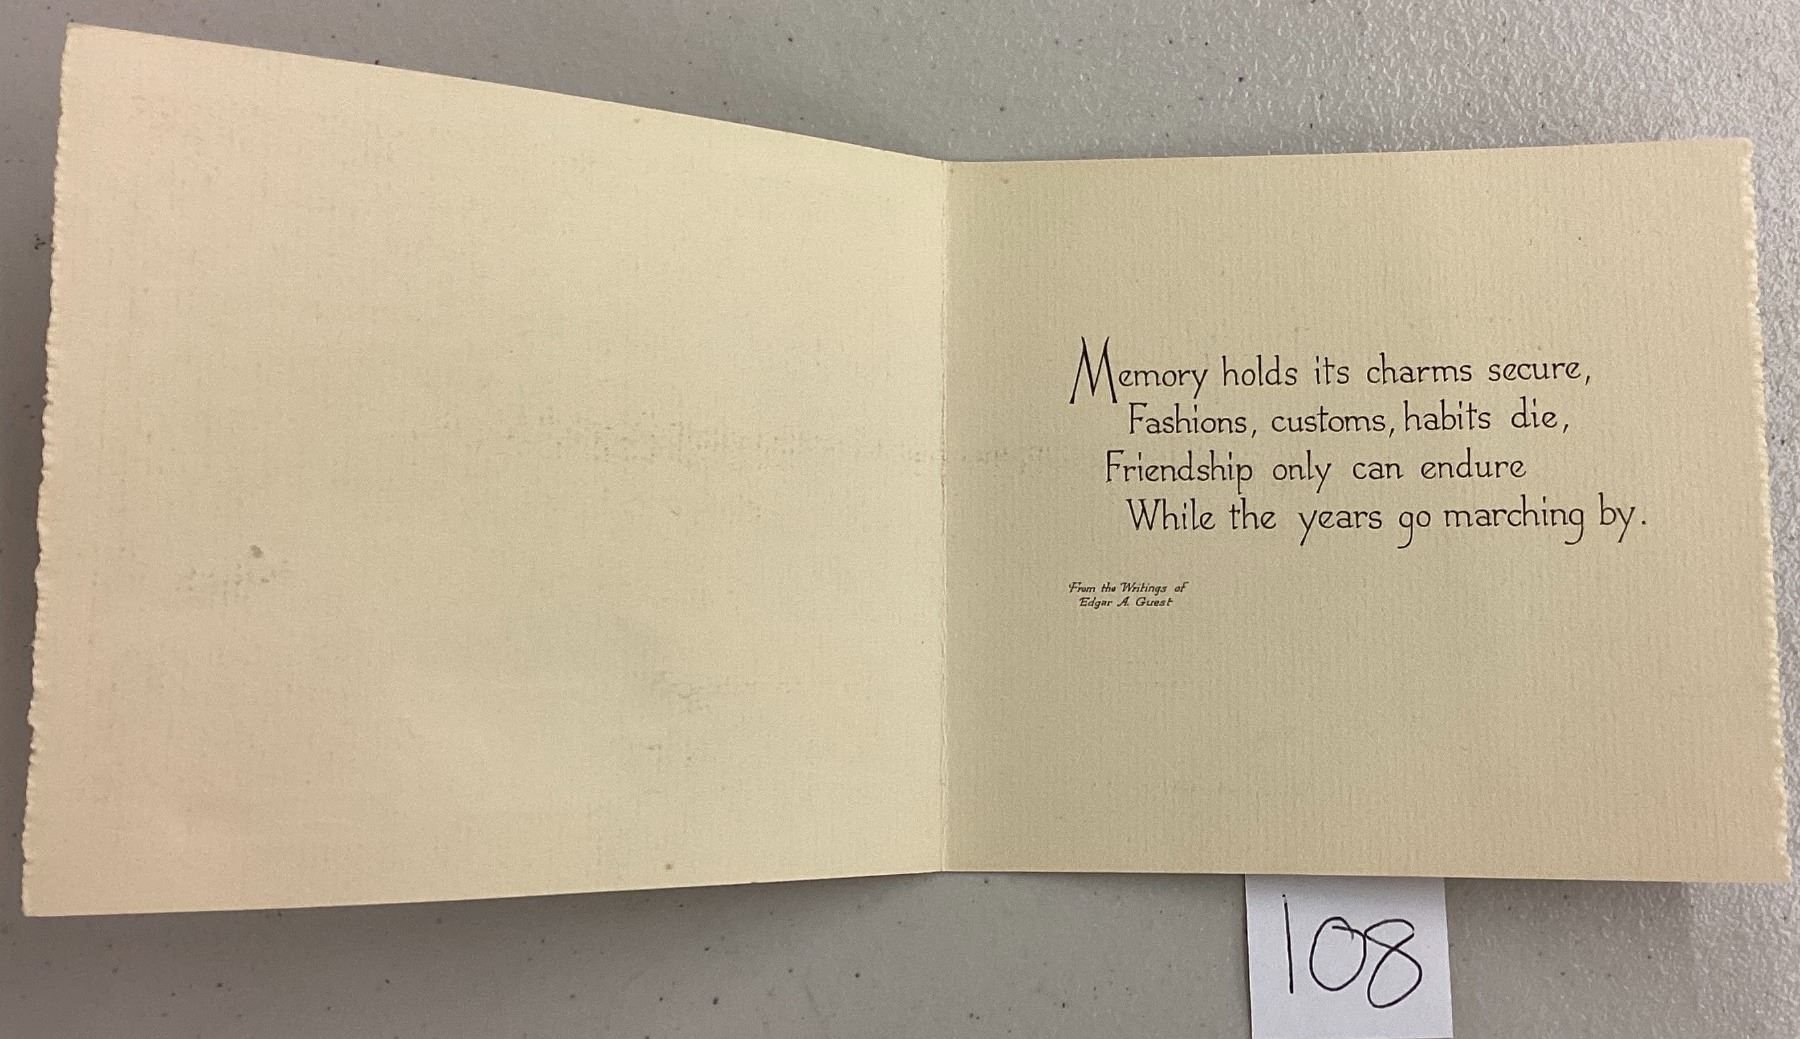 Memory holds its charms secure,
Fashions, customs, habits die,
Friendship only can endure
While the years go marching by.
From the Writings of
Edgar A. Guest
108